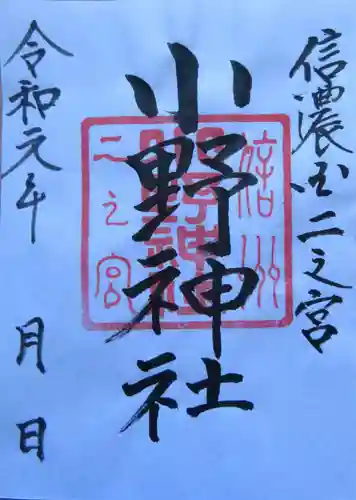 信濃国二之宮
小野神社
令和元年 月 日
信州
小野神社
二之宮